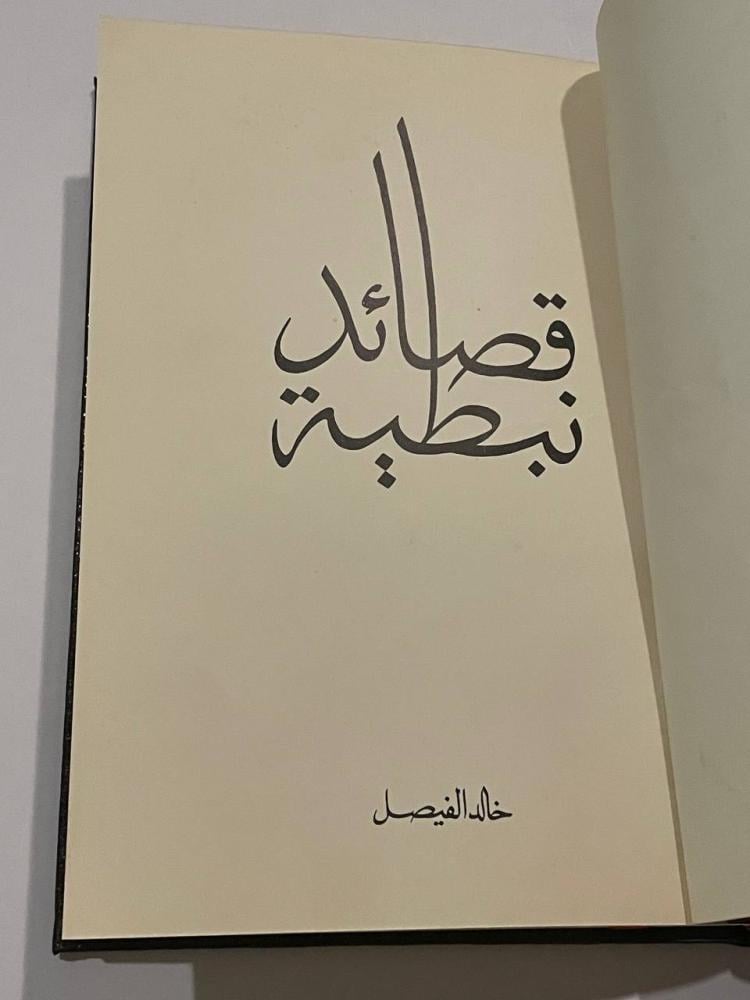 قصائد
نبطية
خالد الفيصل